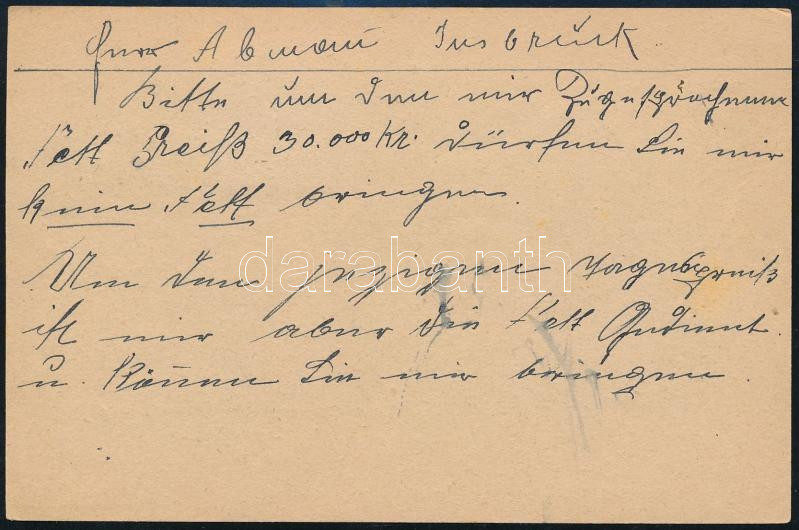 Herr Abmani Insbruck
Bitte um den mir Zugesprochenen
Fett Preiß 30.000 Kr. dürfen Sie mir
kein Fett bringen.
Um den jezigen tagespreiß
ist mir aber die Fett Gedient
u. können Sie mir bringen
darabanth